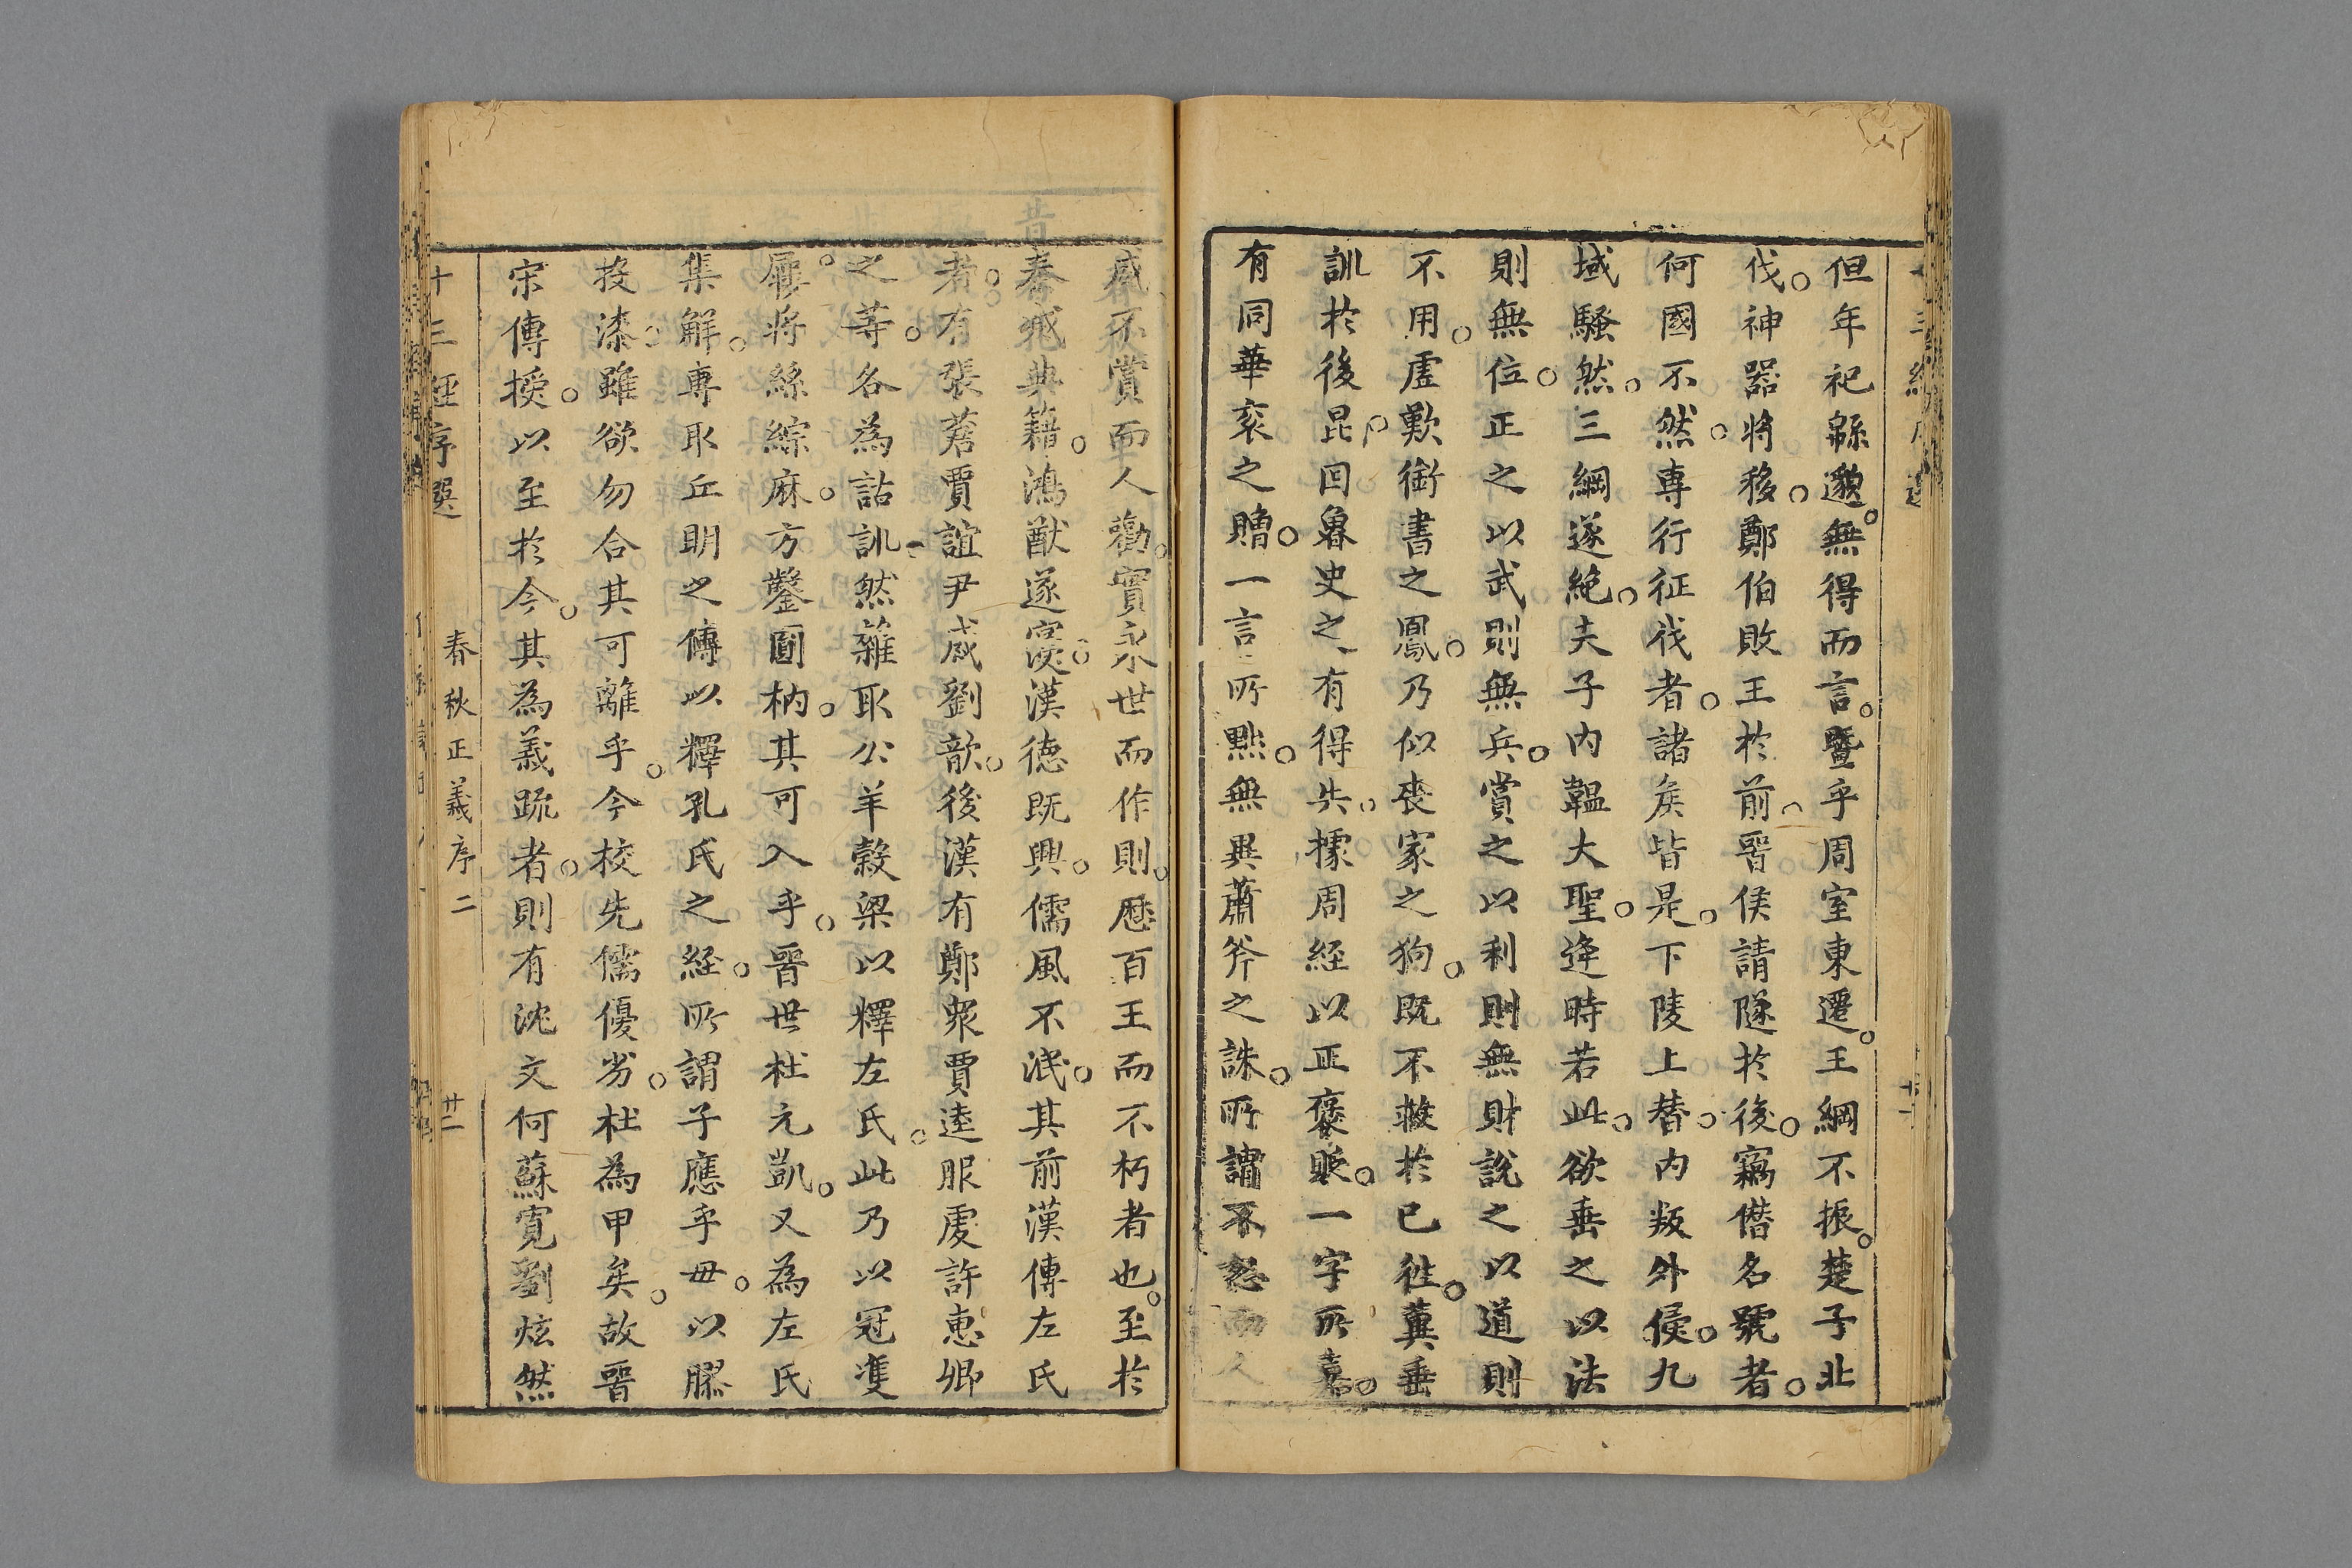 但年祀緜邈無得而言暨乎周室東遷王綱不振楚子北
伐神器將移鄭伯敗王於前晉侯請隧於後竊僭名號者
何國不然專行征伐者諸矦皆是下陵上替内叛外侵九
域騷然三綱遂絶夫子内韞大聖逢時若此欲垂之以法
則無位正之以武則無兵賞之以利則無財説之以道則
不用虚歎銜書之鳳乃似喪家之狗既不救於已徃冀垂
訓於後昆因魯史之有得失據周経以正褒貶一字所嘉
有同華衮之贈一言所黜無異蕭斧之誅所謂不怒而人
威不賞而人勸實永世而作則歴百王而不朽者也至於
秦滅典籍鴻猷遂寢漢徳既興儒風不泯其前漢傳左氏
者有張蒼賈誼尹咸劉歆後漢有鄭衆賈逵服虔許惠卿
之等各為詁訓然雜取公羊穀梁以釋左氏此乃以冠雙
屨將絲綜麻方鑿圓枘其可入乎晉世杜元凱又為左氏
集解專取丘明之傳以釋孔氏之経所謂子應乎毌以膠
投漆雖欲勿合其可離乎今校先儒優劣杜為甲矣故晉
宋傳授以至於今其為義疏者則有沈文何蘇寛劉炫然
十三経序選 春秋正義序二 廿二